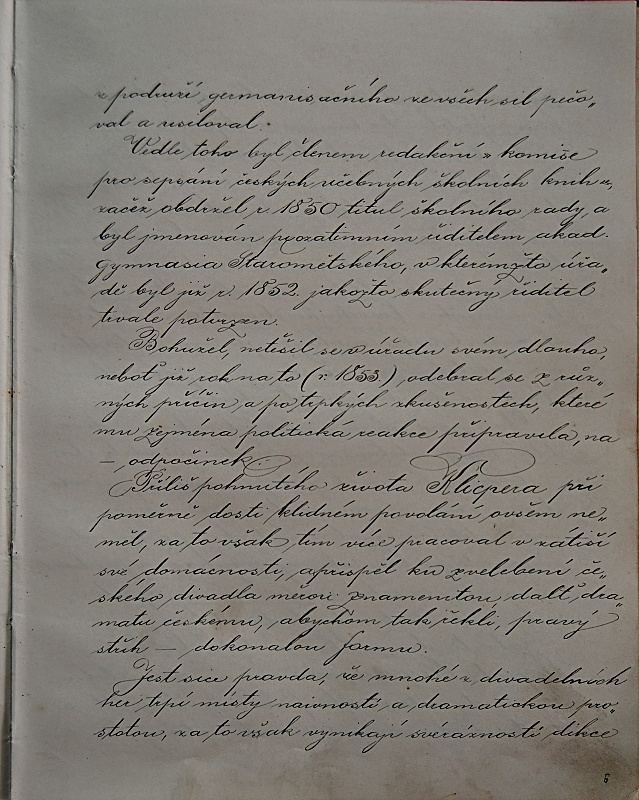 z područí germanisačního ze všech sil pečo„
val a usiloval.
Vedle toho byl členem redakční komise
pro sepsání českých učebných školních knih,
začež obdržel r. 1850 titul školního rady, a
byl jmenován prozatimním ředitelem akad.
gymnasia Staroměstského, v kterémžto úřa„
dě byl již r. 1852. jakožto skutečný ředitel
trvale potvrzen.
Bohužel, netěšil se v úřadu svém dlouho,
neboť již rok na to (r. 1853.) odebral se z růz„
ných příčin a po trpkých zkušenostech, které
mu zejména politická reakce připravila, na
— odpočinek.
Příliš pohnutého života Klicpera při
poměrně dosti klidném povolání ovšem ne„
měl, za to však tím více pracoval v zátiší
své domácnosti, a přispěl ku zvelebení če„
ského divadla měrou znamenitou, dalť dra„
matu českému, abychom tak řekli, pravý
střih — dokonalou formu.
Jest sice pravda, že mnohé z divadelních
her trpí místy naivností a dramatickou pro„
stotou, za to však vynikají svérázností dikce
6